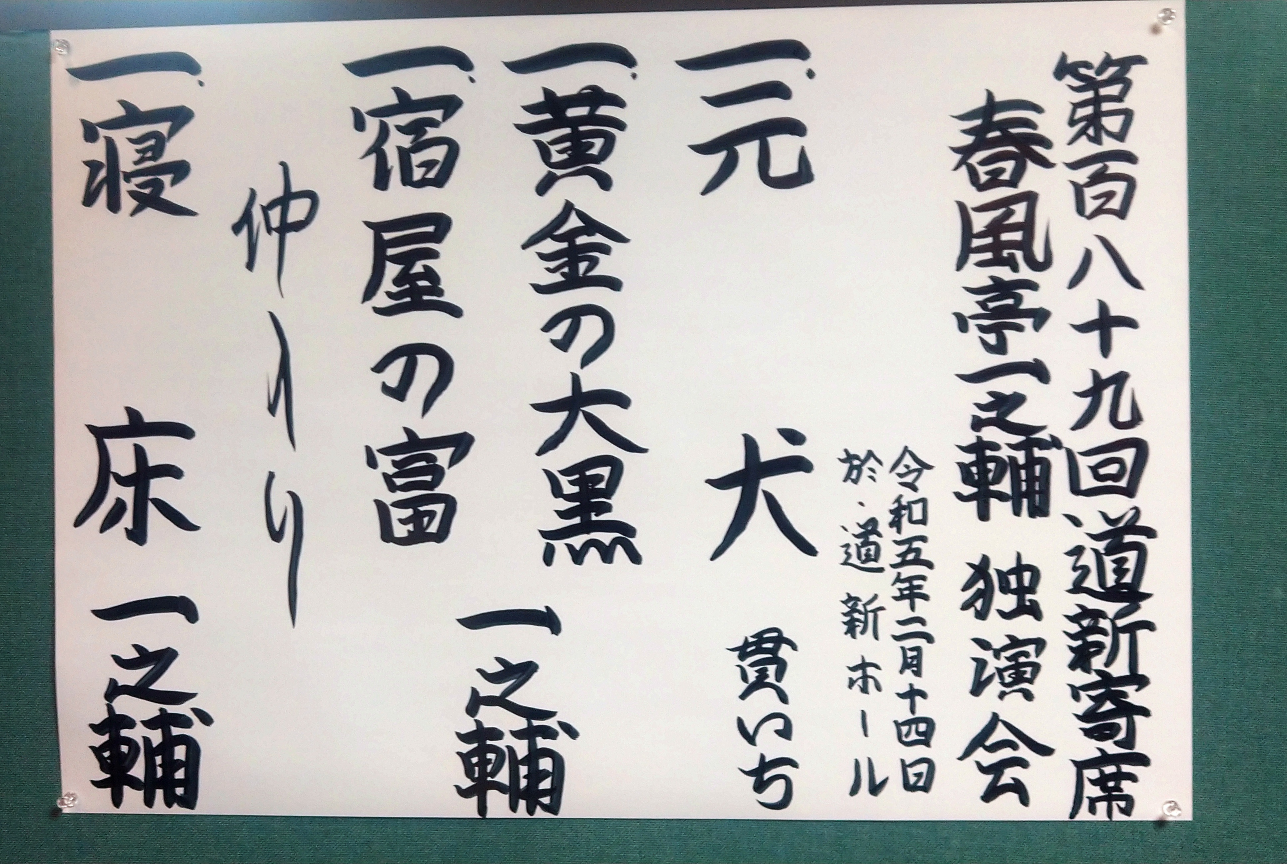 第百八十九回道新寄席
春風亭一之輔 独演会
令和五年二月十四日
於・道新ホール
一、元 犬 貫いち
一、黄金の大黒
一、宿屋の富
一之輔
仲入り
一、寝 床 一之輔